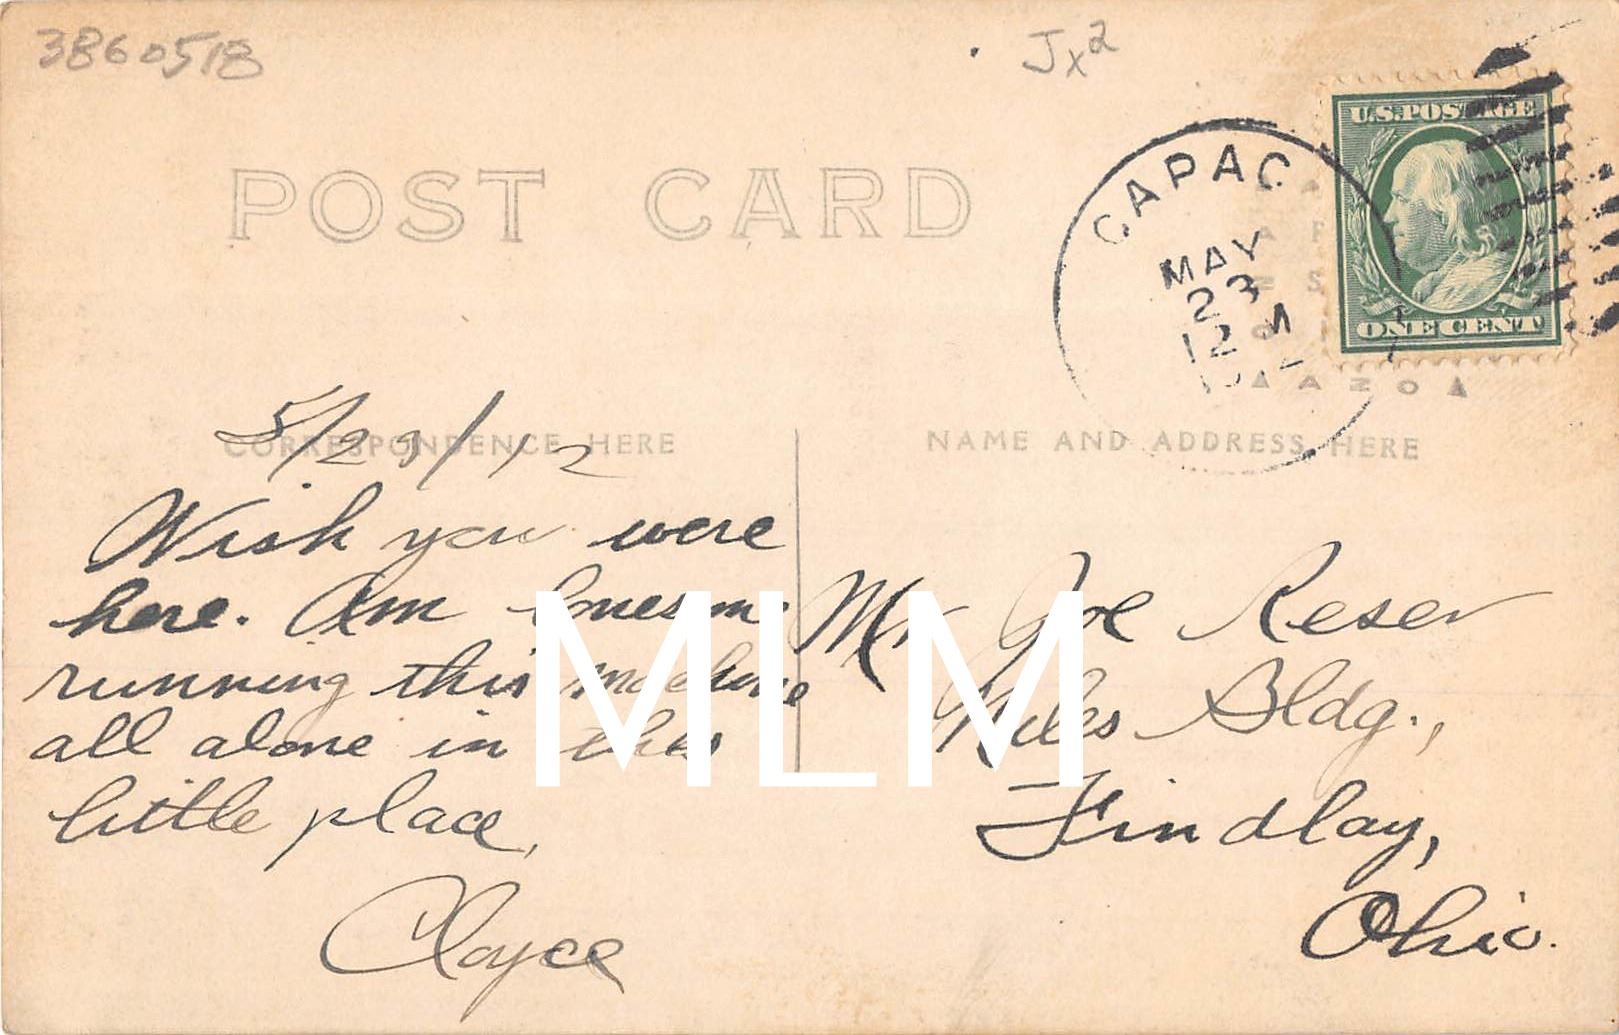 3860518
Jx2
POST CARD
U.S. POSTAGE
ONE CENT
CAPAC
MAY
23
12 M
1912
AZO
5/23/12
CORRESPONDENCE HERE
NAME AND ADDRESS HERE
Wish you were
here. Am lonesome
running this machine
all alone in this
little place,
Cloyce
Mr Joe Reser
Niles Bldg.,
Findlay,
Ohio.
MLM